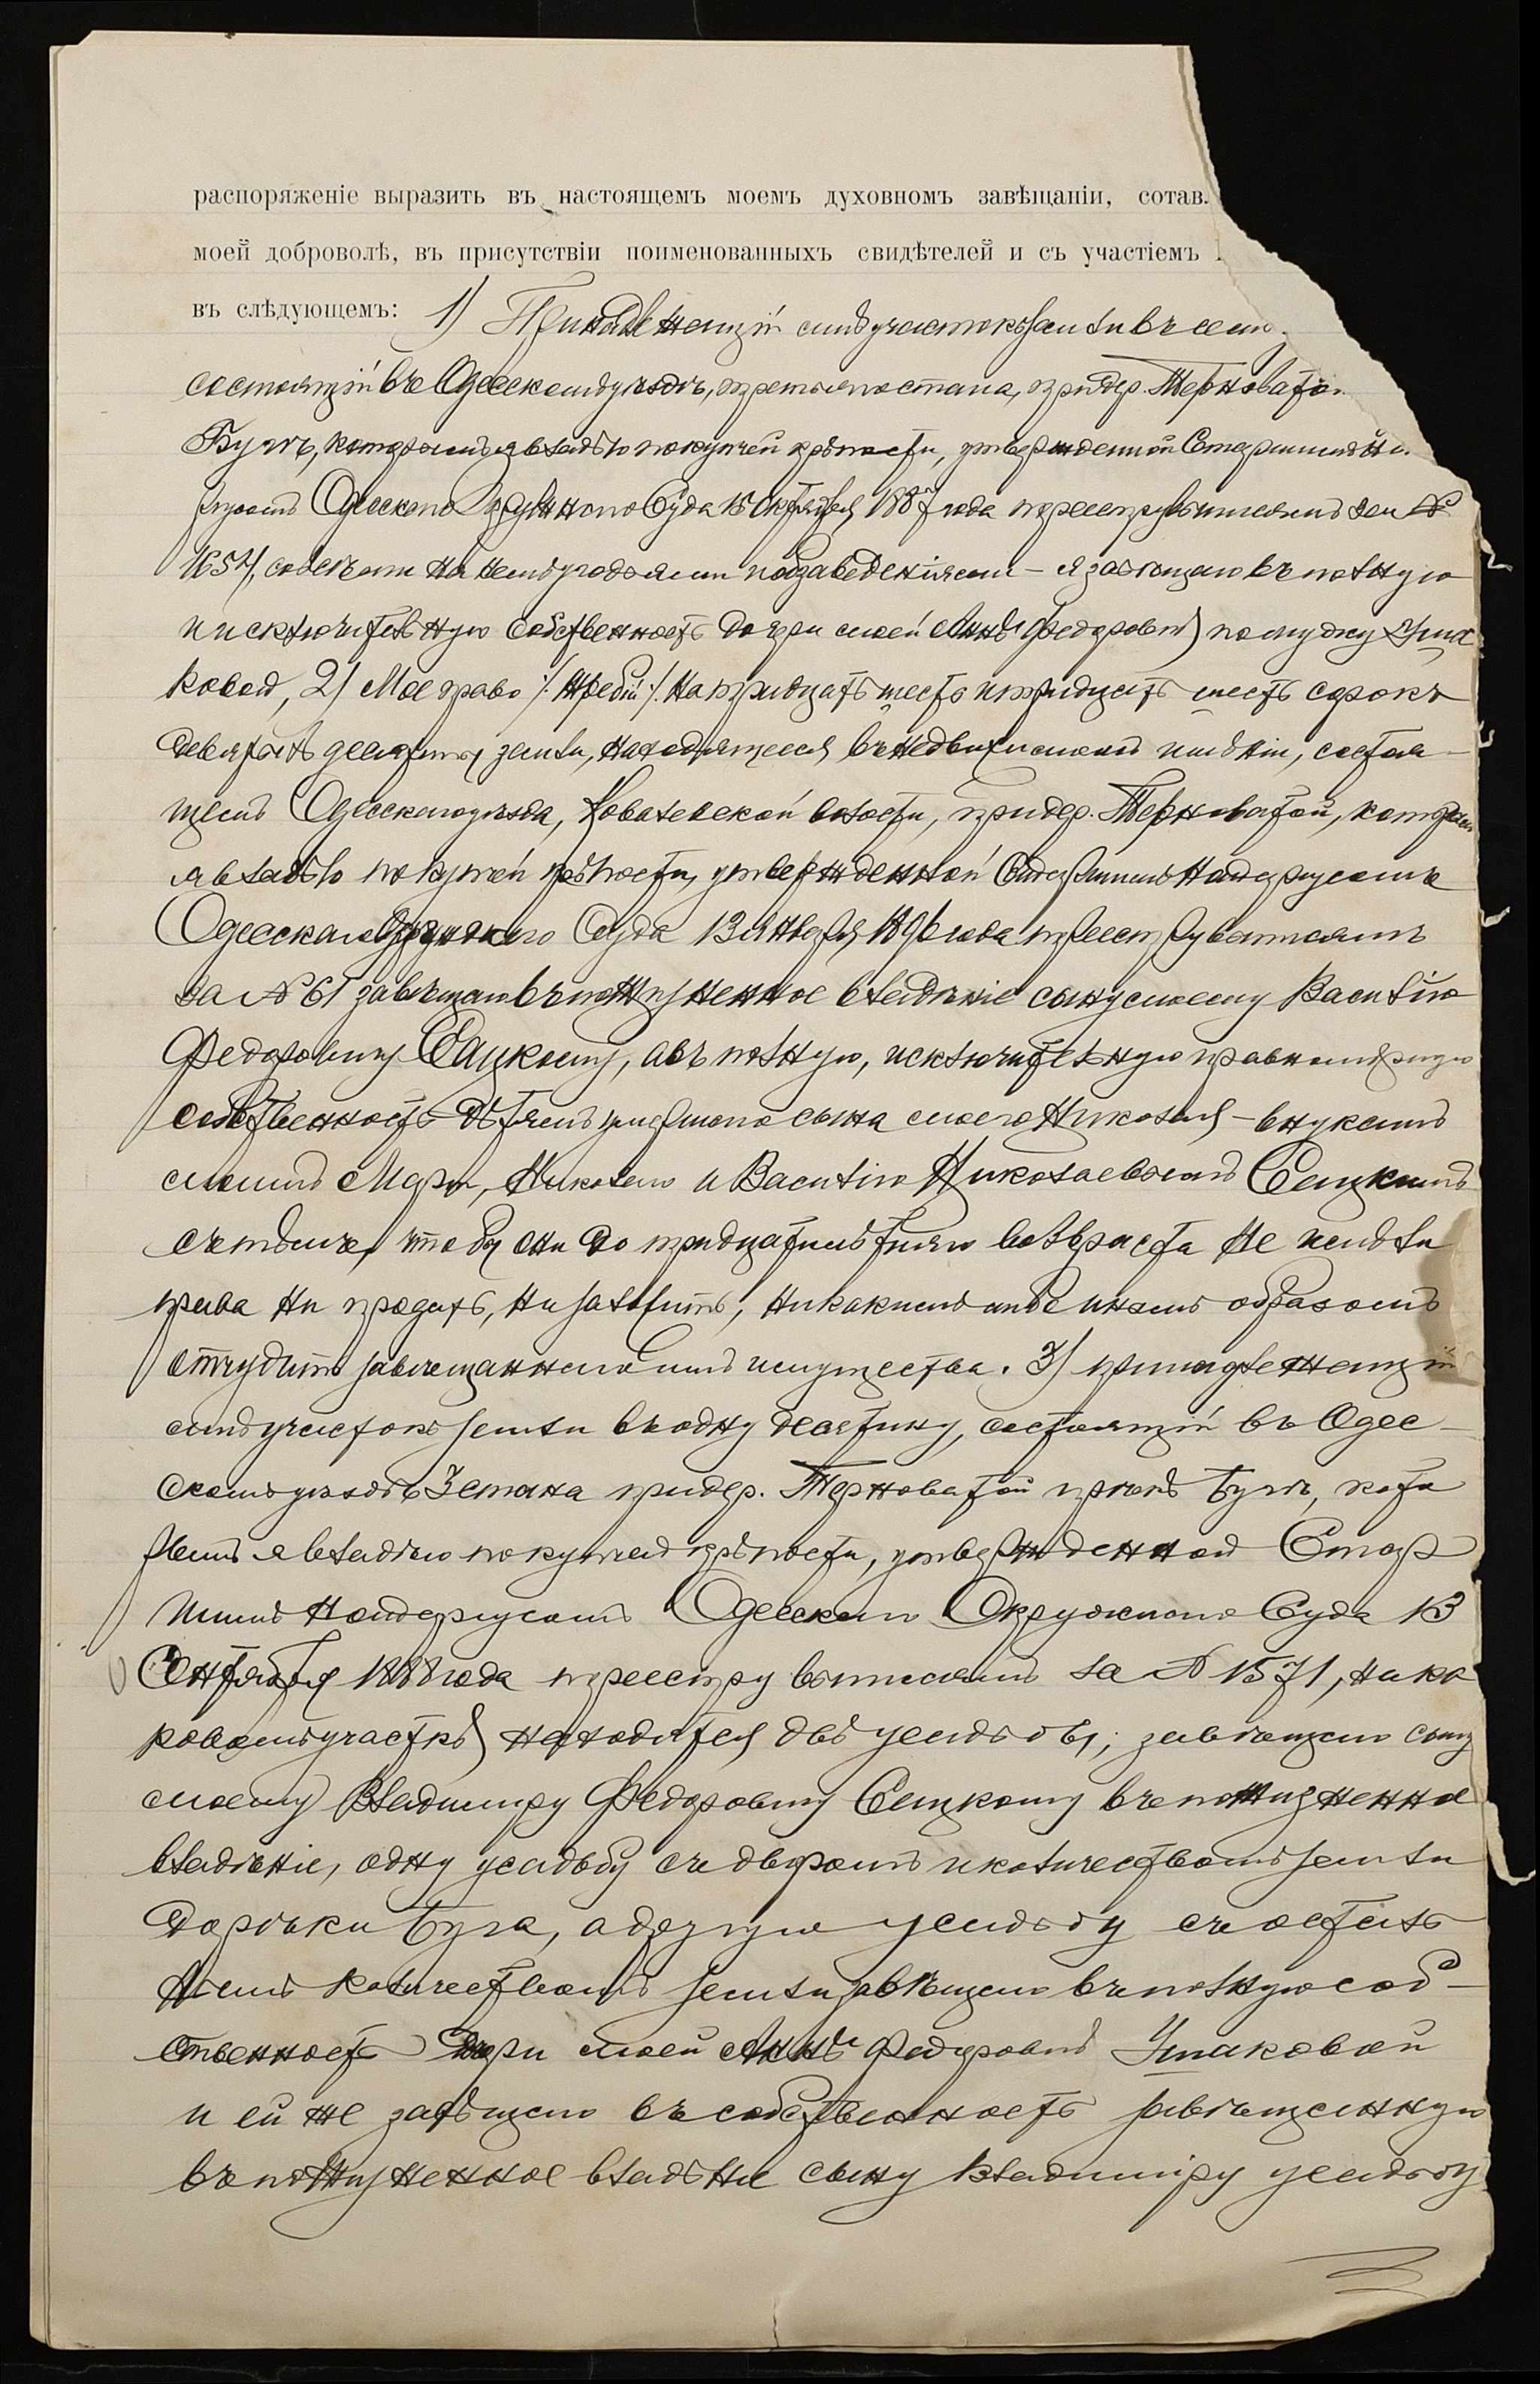 распоряженіе выразить въ настоящемъ моемъ духовномъ завѣщаніи, сотав.
моей доброволѣ, въ присутствіи поименованныхъ свидѣтелей и съ участіемъ
въ слѣдующемъ: 1) Принадлежащій мнѣ участокъ земли въ
состоящій въ Одесскомъ уѣздѣ, третьяго стана, при дер. Терноватой
Бугѣ, которымъ я владѣю по купчей крѣпости, утвержденной Старшимъ Но
таріусомъ Одесскаго Окружнаго Суда 15 Октября 1887 года по реестру выписямъ за №
1654, со всѣми на немъ угодьями и заведеніями – я завѣщаю въ полную
и исключительную собственность дочери моей Аннѣ Федоровнѣ по мужу Уша
ковой, 2) Мое право /: жребій :/ на тридцать шесть и тридцать шесть сорокъ
девятыхъ десятины земли, находящееся въ недвижимомъ имѣніи, состоя-
щемъ Одесскаго уѣзда, Ковалевской волости, при дер. Терноватой, которымъ
я владѣю по купчей крѣпости, утвержденной Старшимъ Нотаріусомъ
Одесскаго Окружнаго Суда 13 Января 1896 года по реестру выписямъ
за № 61 завѣщаю въ пожизненное владѣніе сыну моему Василію
Федоровичу Сацкому, а въ полную, исключительную и равномѣрную
собственность – дѣтямъ умершаго сына моего Николая – внукамъ
моимъ Маріи, Николаю и Василію Николаевымъ Сацкимъ
съ тѣмъ, чтобы они до тридцатилѣтняго возраста не имѣли
права ни продать, ни заложить, ни какимъ либо инымъ образомъ
отчудить завѣщаннаго имъ имущества. 3) принадлежащій
мнѣ участокъ земли въ одну десятину, состоящій въ Одес-
скомъ уѣздѣ 3 стана при дер. Терноватой при Бугѣ, кото
рымъ я владѣю по купчей крѣпости, утвержденной Стар
шимъ Нотаріусомъ Одесскаго Окружнаго Суда 13
Сентября 1888 года по реестру выписямъ за № 1571, на ко
ковомъ участкѣ находятся двѣ усадьбы; завѣщаю сыну
моему Владиміру Федоровичу Сацкому въ пожизненное
владѣніе, одну усадьбу съ дворомъ и количествомъ земли
до рѣки Буга, а другую усадьбу съ осталь
нымъ количествомъ земли завѣщаю въ полную соб-
ственность дочери моей Аннѣ Федоровнѣ Ушаковой
и ей же завѣщаю въ собственность завѣщанную
въ пожизненное владѣніе сыну Владиміру усадьбу